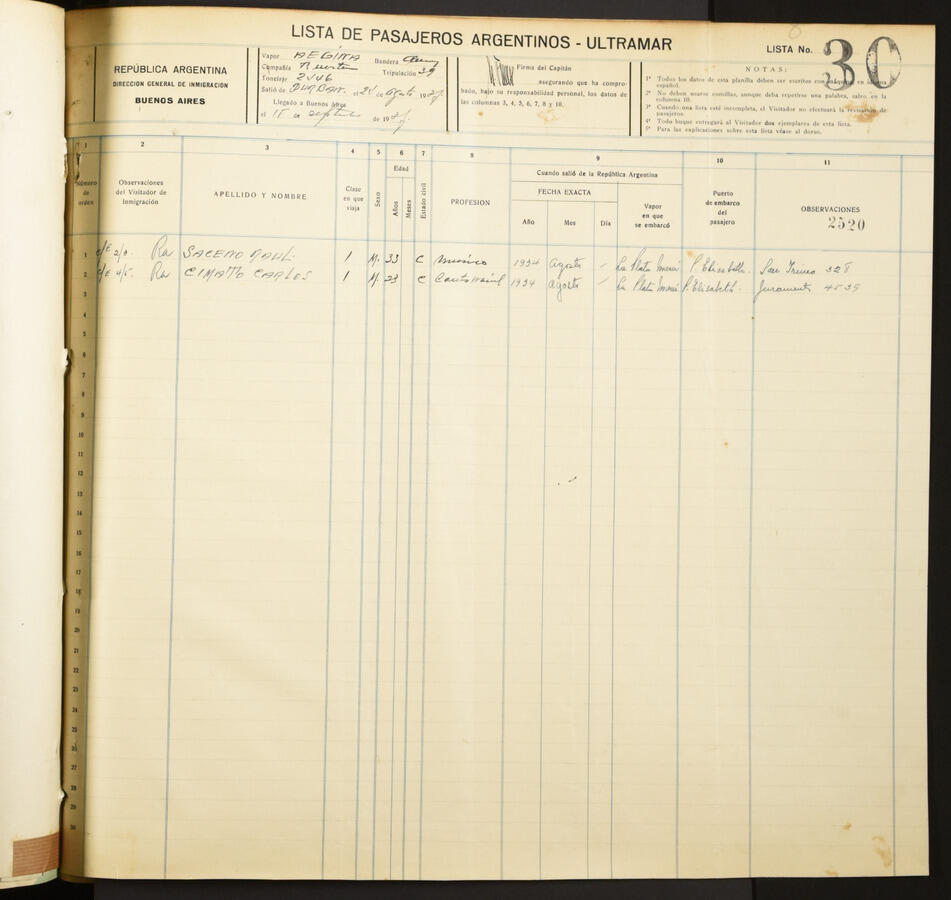 LISTA DE PASAJEROS ARGENTINOS - ULTRAMAR
LISTA No. 30
REPÚBLICA ARGENTINA
DIRECCIÓN GENERAL DE INMIGRACIÓN
BUENOS AIRES
Vapor REGINA Bandera
Compañía Tripulación 39
Tonelaje 2446
Salió de DURBAN el 24 de Agosto 193
Llegado a Buenos Aires
el 15 de septiembre de 193
Firma del Capitán
asegurando que ha compro-
bado, bajo su responsabilidad personal, los datos de
las columnas 3, 4, 5, 6, 7, 8 y 10.
NOTAS:
1ª Todos los datos de esta planilla deben ser escritos con máquina en
español.
2ª No deben usarse comillas, aunque deba repetirse una palabra, salvo en la
columna 10.
3ª Cuando una lista esté incompleta, el Visitador no efectuará la revisación de
pasajeros.
4ª Todo buque entregará al Visitador dos ejemplares de esta lista.
5ª Para las explicaciones sobre esta lista véase al dorso.
1 2 3 4 5 6 7 8 9 10 11
Número de orden
Observaciones del Visitador de Inmigración
APELLIDO Y NOMBRE
Clase en que viaja
Sexo
Edad
Años
Meses
Estado civil
PROFESION
Cuando salió de la República Argentina
FECHA EXACTA
Año
Mes
Día
Vapor en que se embarcó
Puerto de embarco del pasajero
OBSERVACIONES
2520
1 c/E 2/0. Ra SACERO RAUL 1 M. 33 C Músico 1934 Agosto La Plata Maru P. Elisabeth. 328
2 c/E 4/5. Ra CIMATTO CARLOS 1 M. 23 C 1934 Agosto La Plata Maru P. Elisabeth. Juramento 4535
3
4
5
6
7
8
9
10
11
12
13
14
15
16
17
18
19
20
21
22
23
24
25
26
27
28
29
30